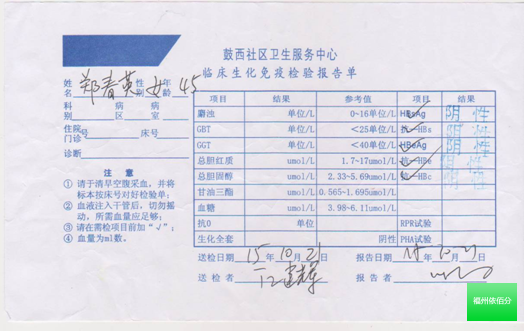 鼓西社区卫生服务中心
临床生化免疫检验报告单
姓名 郑春英 性别 女 年龄 45
科别 病区 病室
住院门诊号 床号
诊断
项目 结果 参考值 项目 结果
麝浊 单位/L 0~16单位/L HBsAg 阴 性
GBT 单位/L <25单位/L 抗-HBs 阴 性
GGT 单位/L <40单位/L HBeAg 阴 性
总胆红质 umol/L 1.7~17umol/L 抗-HBe 阴 性
总胆固醇 umol/L 2.33~5.69umol/L 抗-HBc 阴 性
甘油三酯 umol/L 0.565~1.695umol/L
血糖 umol/L 3.98~6.11umol/L
抗0 单位 RPR试验
生化全套 阴性 PHA试验
注 意
① 请于清早空腹采血，并将
标本按床号对好检验单；
② 血液注入干管后，切勿摇
动，所需血量应足够；
③ 请在需检项目前加“√”；
④ 血量为ml数。
送检日期 15 年 10 月 21 日 报告日期 年 10 月 21 日
送 检 者 报 告 者
福州依佰分